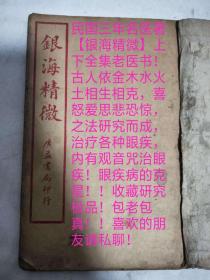 銀海精微
广益書局印行
民国三年名医著
【银海精微】上
下全集老医书！
古人依金木水火
土相生相克，喜
怒爱思悲恐惊，
之法研究而成，
治疗各种眼疾，
内有观音咒治眼
疾！眼疾病的克
星！！收藏研究
极品！包老包
真！！喜欢的朋
友请私聊！